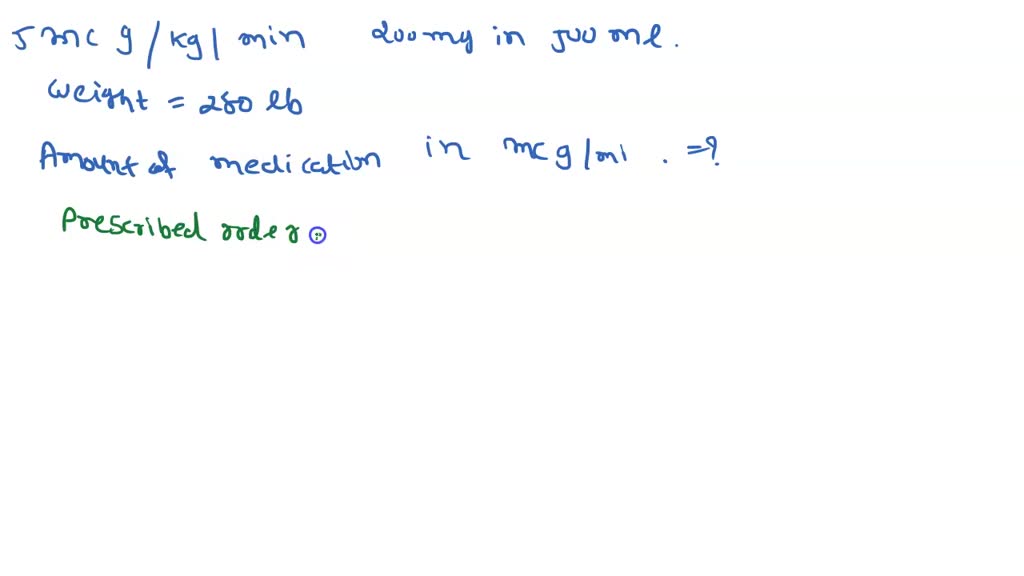 5 mcg/kg/min 200mg in 500 ml.
weight = 280 lb
Amount of medication in mcg/ml . =?
Prescribed order :